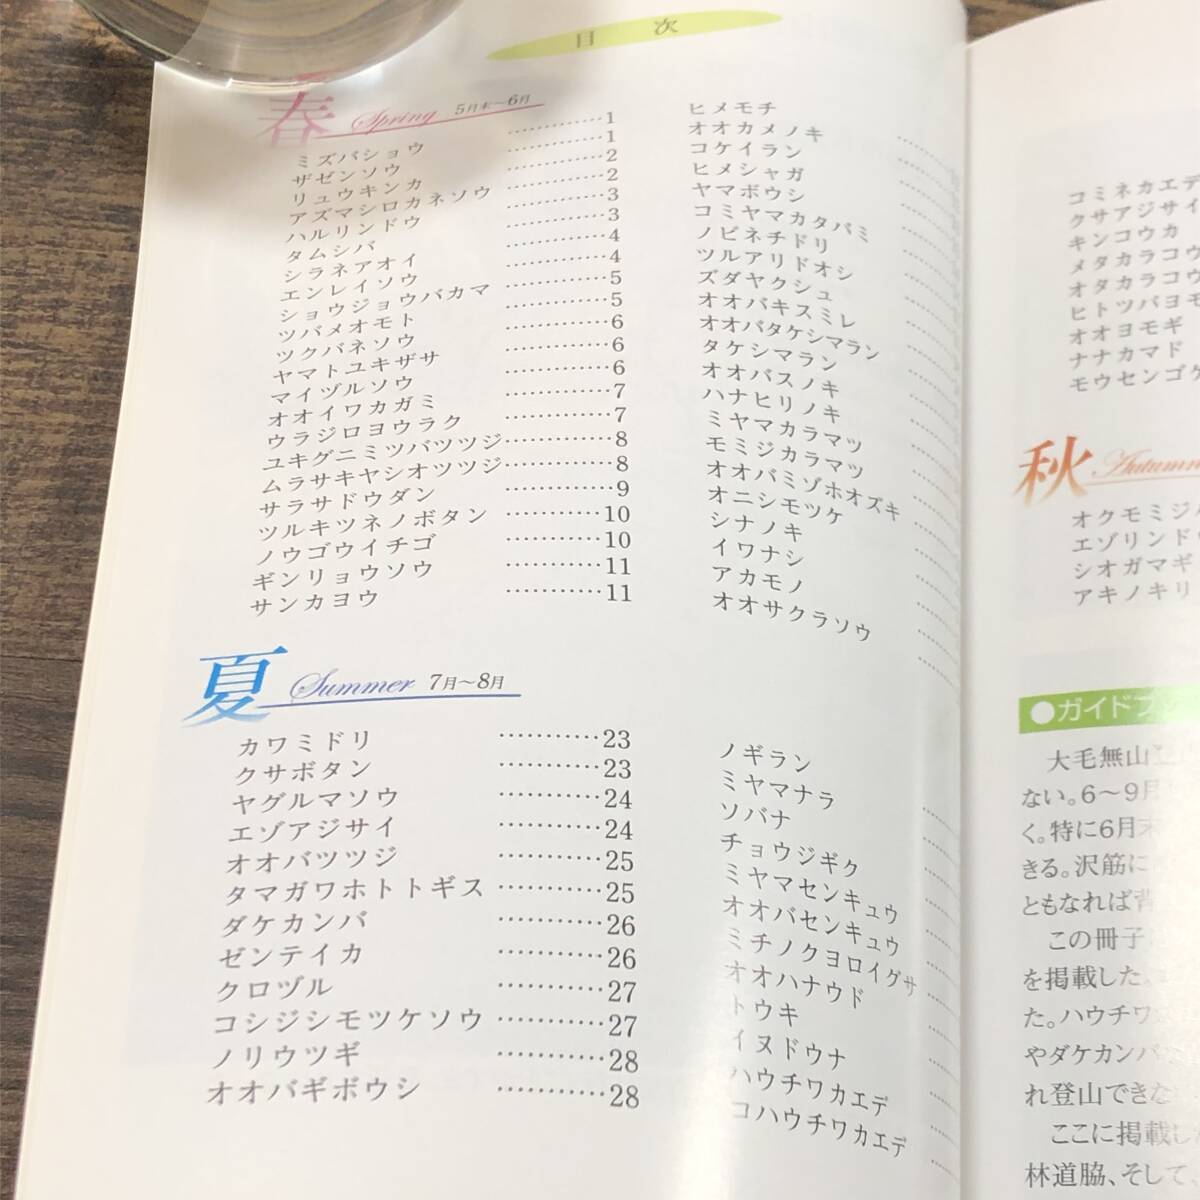 目次
春 Spring 5月末〜6月
ミズバショウ …………1
ザゼンソウ …………1
リュウキンカ …………2
アズマシロカネソウ …………2
ハルリンドウ …………3
タムシバ …………3
シラネアオイ …………4
エンレイソウ …………4
ショウジョウバカマ …………5
ツバメオモト …………5
ツクバネソウ …………6
ヤマトユキザサ …………6
マイヅルソウ …………6
オオイワカガミ …………7
ウラジロヨウラク …………7
ユキグニミツバツツジ …………8
ムラサキヤシオツツジ …………8
サラサドウダン …………9
ツルキツネノボタン …………10
ノウゴウイチゴ …………10
ギンリョウソウ …………11
サンカヨウ …………11
ヒメモチ
オオカメノキ
コケイラン
ヒメシャガ
ヤマボウシ
コミヤマカタバミ
ノビネチドリ
ツルアリドオシ
ズダヤクシュ
オオバキスミレ
オオバタケシマラン
タケシマラン
オオバスノキ
ハナヒリノキ
ミヤマカラマツ
モミジカラマツ
オオバミゾホオズキ
オニシモツケ
シナノキ
イワナシ
アカモノ
オオサクラソウ
夏 Summer 7月〜8月
カワミドリ …………23
クサボタン …………23
ヤグルマソウ …………24
エゾアジサイ …………24
オオバツツジ …………25
タマガワホトトギス …………25
ダケカンバ …………26
ゼンテイカ …………26
クロヅル …………27
コシジシモツケソウ …………27
ノリウツギ …………28
オオバギボウシ …………28
ノギラン
ミヤマナラ
ソバナ
チョウジギク
ミヤマセンキュウ
オオバセンキュウ
ミチノクヨロイグサ
オオハナウド
トウキ
イヌドウナ
ハウチワカエデ
コハウチワカエデ
コミネカエデ
クサアジサイ
キンコウカ
メタカラコウ
オタカラコウ
ヒトツバヨモ
オオヨモギ
ナナカマド
モウセンゴケ
秋 Autumn
オクモミジハ
エゾリンドウ
シオガマギ
アキノキリ
●ガイドブッ
大毛無山
ない。6〜9月
く。特に6月末
きる。沢筋に
ともなれば背
この冊子
を掲載した。
た。ハウチワ
やダケカンバ
れ登山できな
ここに掲載し
林道脇、そして、